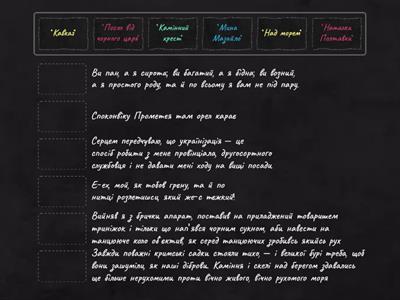 "Кавказ"
"Посол від
чорного царя"
"Камінний
хрест"
"Мина
Мазайло"
"Над морем"
"Наталка
Полтавка"
Ви пан, а я сирота; ви багатий, а я бідна; ви возний,
а я простого роду; та й по всьому я вам не під пару.
Споконвіку Прометея там орел карає
Серцем передчуваю, що українізація — це
спосіб робити з мене провінціала, другосортного
службовця і не давати мені ходу на вищі посади.
Е-ех, мой, як тобов грену, та й по
нитці розлетишся, який же-с тєжкий!
Вийняв я з брички апарат, поставив на приладжений товаришем
триніжок і тільки що нап'явся чорним сукном, аби навести на
танцююче коло об'єктив, як серед танцюючих зробивсь якийсь рух
Завжди поважні кримські садки стояли тихо, — і великої бурі треба, щоб
вони зашуміли, як наші діброви. Каміння і скелі над берегом здавались
ще більше нерухомими проти вічно живого, вічно рухомого моря